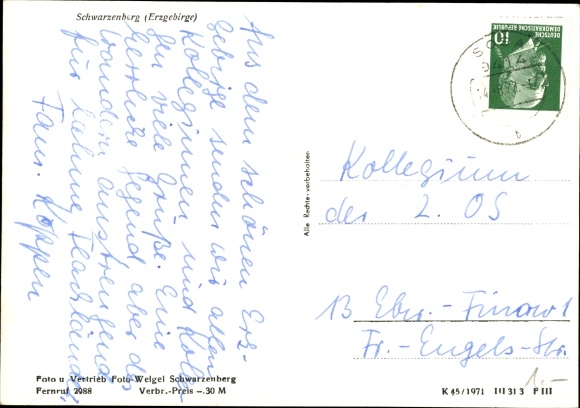 Schwarzenberg (Erzgebirge)
Aus dem schönen Erz-
gebirge senden wir allen
Kolleginnen und Kolle-
gen viele Grüße. Eine
herrliche Gegend, aber das
Wandern anstrengend
für lahme Flachländer.
Fam. Koppen
DEUTSCHE
DEMOKRATISCHE REPUBLIK
10
Alle Rechte vorbehalten
Kollegium
der 2. OS
13 Ebw.-Finow 1
Fr.-Engels-Str.
Foto u. Vertrieb Foto-Weigel Schwarzenberg
Fernruf 2988 Verbr.-Preis -.30 M
K 45/1971 III 31 3 F III
1.-